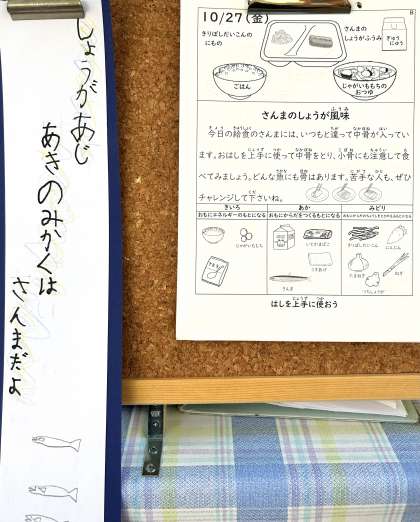 しょうがあじ
あきのみかくは
さんまだよ
10/27(金)
きりぼしだいこんの
にもの
さんまの
しょうがふうみ
ぎゅう
にゅう
ごはん
じゃがいももちの
おつゆ
さんまのしょうが風味
今日の給食のさんまには、いつもと違って中骨が入ってい
ます。おはしを上手に使って中骨をとり、小骨にも注意して食
べてみましょう。どんな魚にも骨はあります。苦手な人も、ぜひ
チャレンジして下さいね。
きいろ
おもにエネルギーのもとになる
あか
おもにからだをつくるもとになる
みどり
じゃがいももち
いたかまぼこ
こまあげ
さんま
きりぼしだいこん
にんじん
たまねぎ
ねぎ
はしを上手に使おう